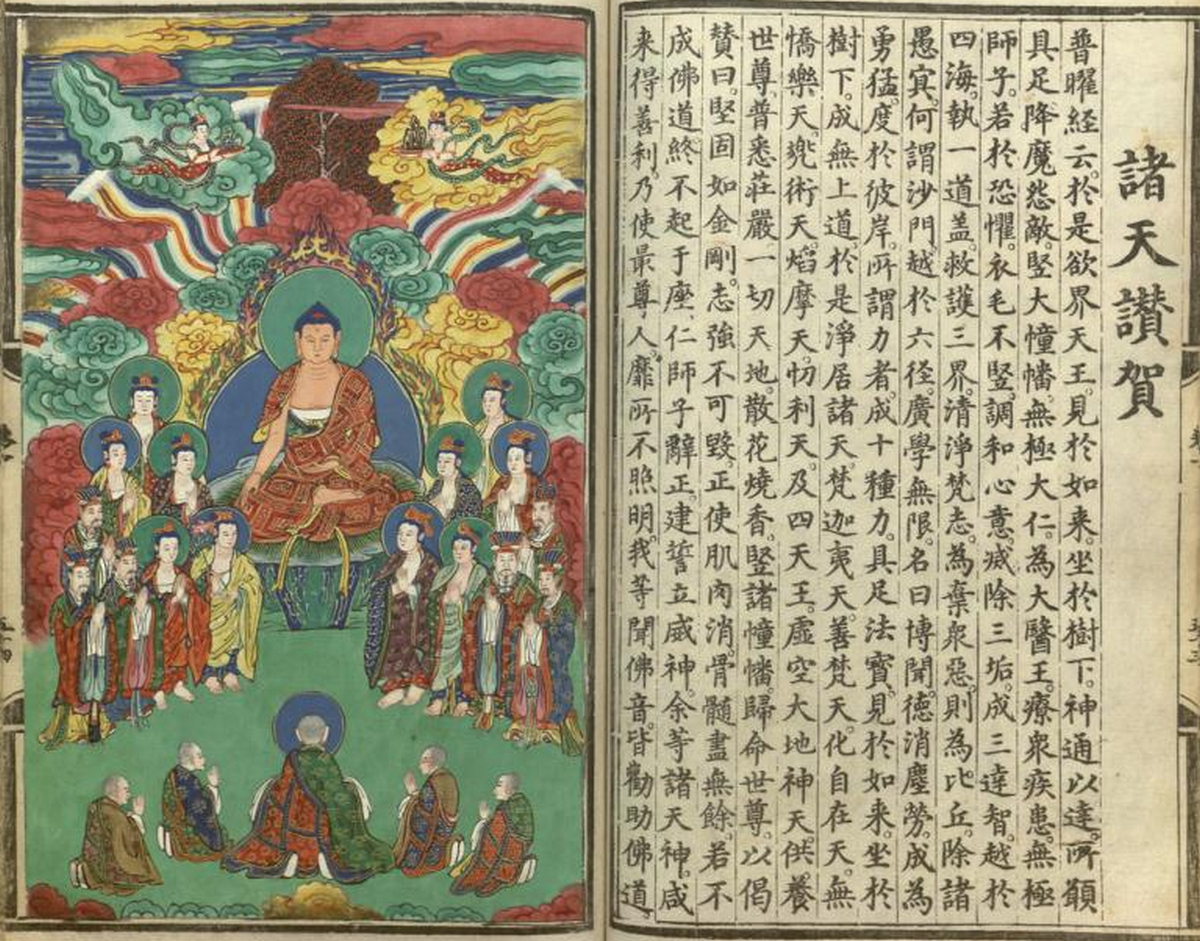 諸天讃賀
普曜経云。於是欲界天王。見於如来。坐於樹下。神通以達。所願
具足降魔怨敵。竪大幢幡。無極大仁。為大醫王。療衆疾患。無極
師子。若於恐懼。衣毛不竪。調和心意。滅除三垢。成三達智。越於
四海。執一道盖。救護三界。清淨梵志。為棄衆惡。則為比丘。除諸
愚冥。何謂沙門。越於六径。廣學無限。名曰博聞。德消塵勞。成為
勇猛。度於彼岸。所謂力者。成十種力。具足法寳。見於如来。坐於
樹下。成無上道。於是淨居諸天。梵迦夷天。善梵天。化自在天。無
憍樂天。兠術天。焰摩天。忉利天。及四天王。虛空大地神天。供養
世尊。普悉莊嚴一切天地。散花燒香。竪諸幢幡。歸命世尊。以偈
賛曰。堅固如金剛。志強不可毀。正使肌肉消。骨髓盡無餘。若不
成佛道。終不起于座。仁師子辭正。建誓立威神。余等諸天神。咸
来得善利。乃使最尊人。靡所不照明。我等聞佛音。皆勸助佛道